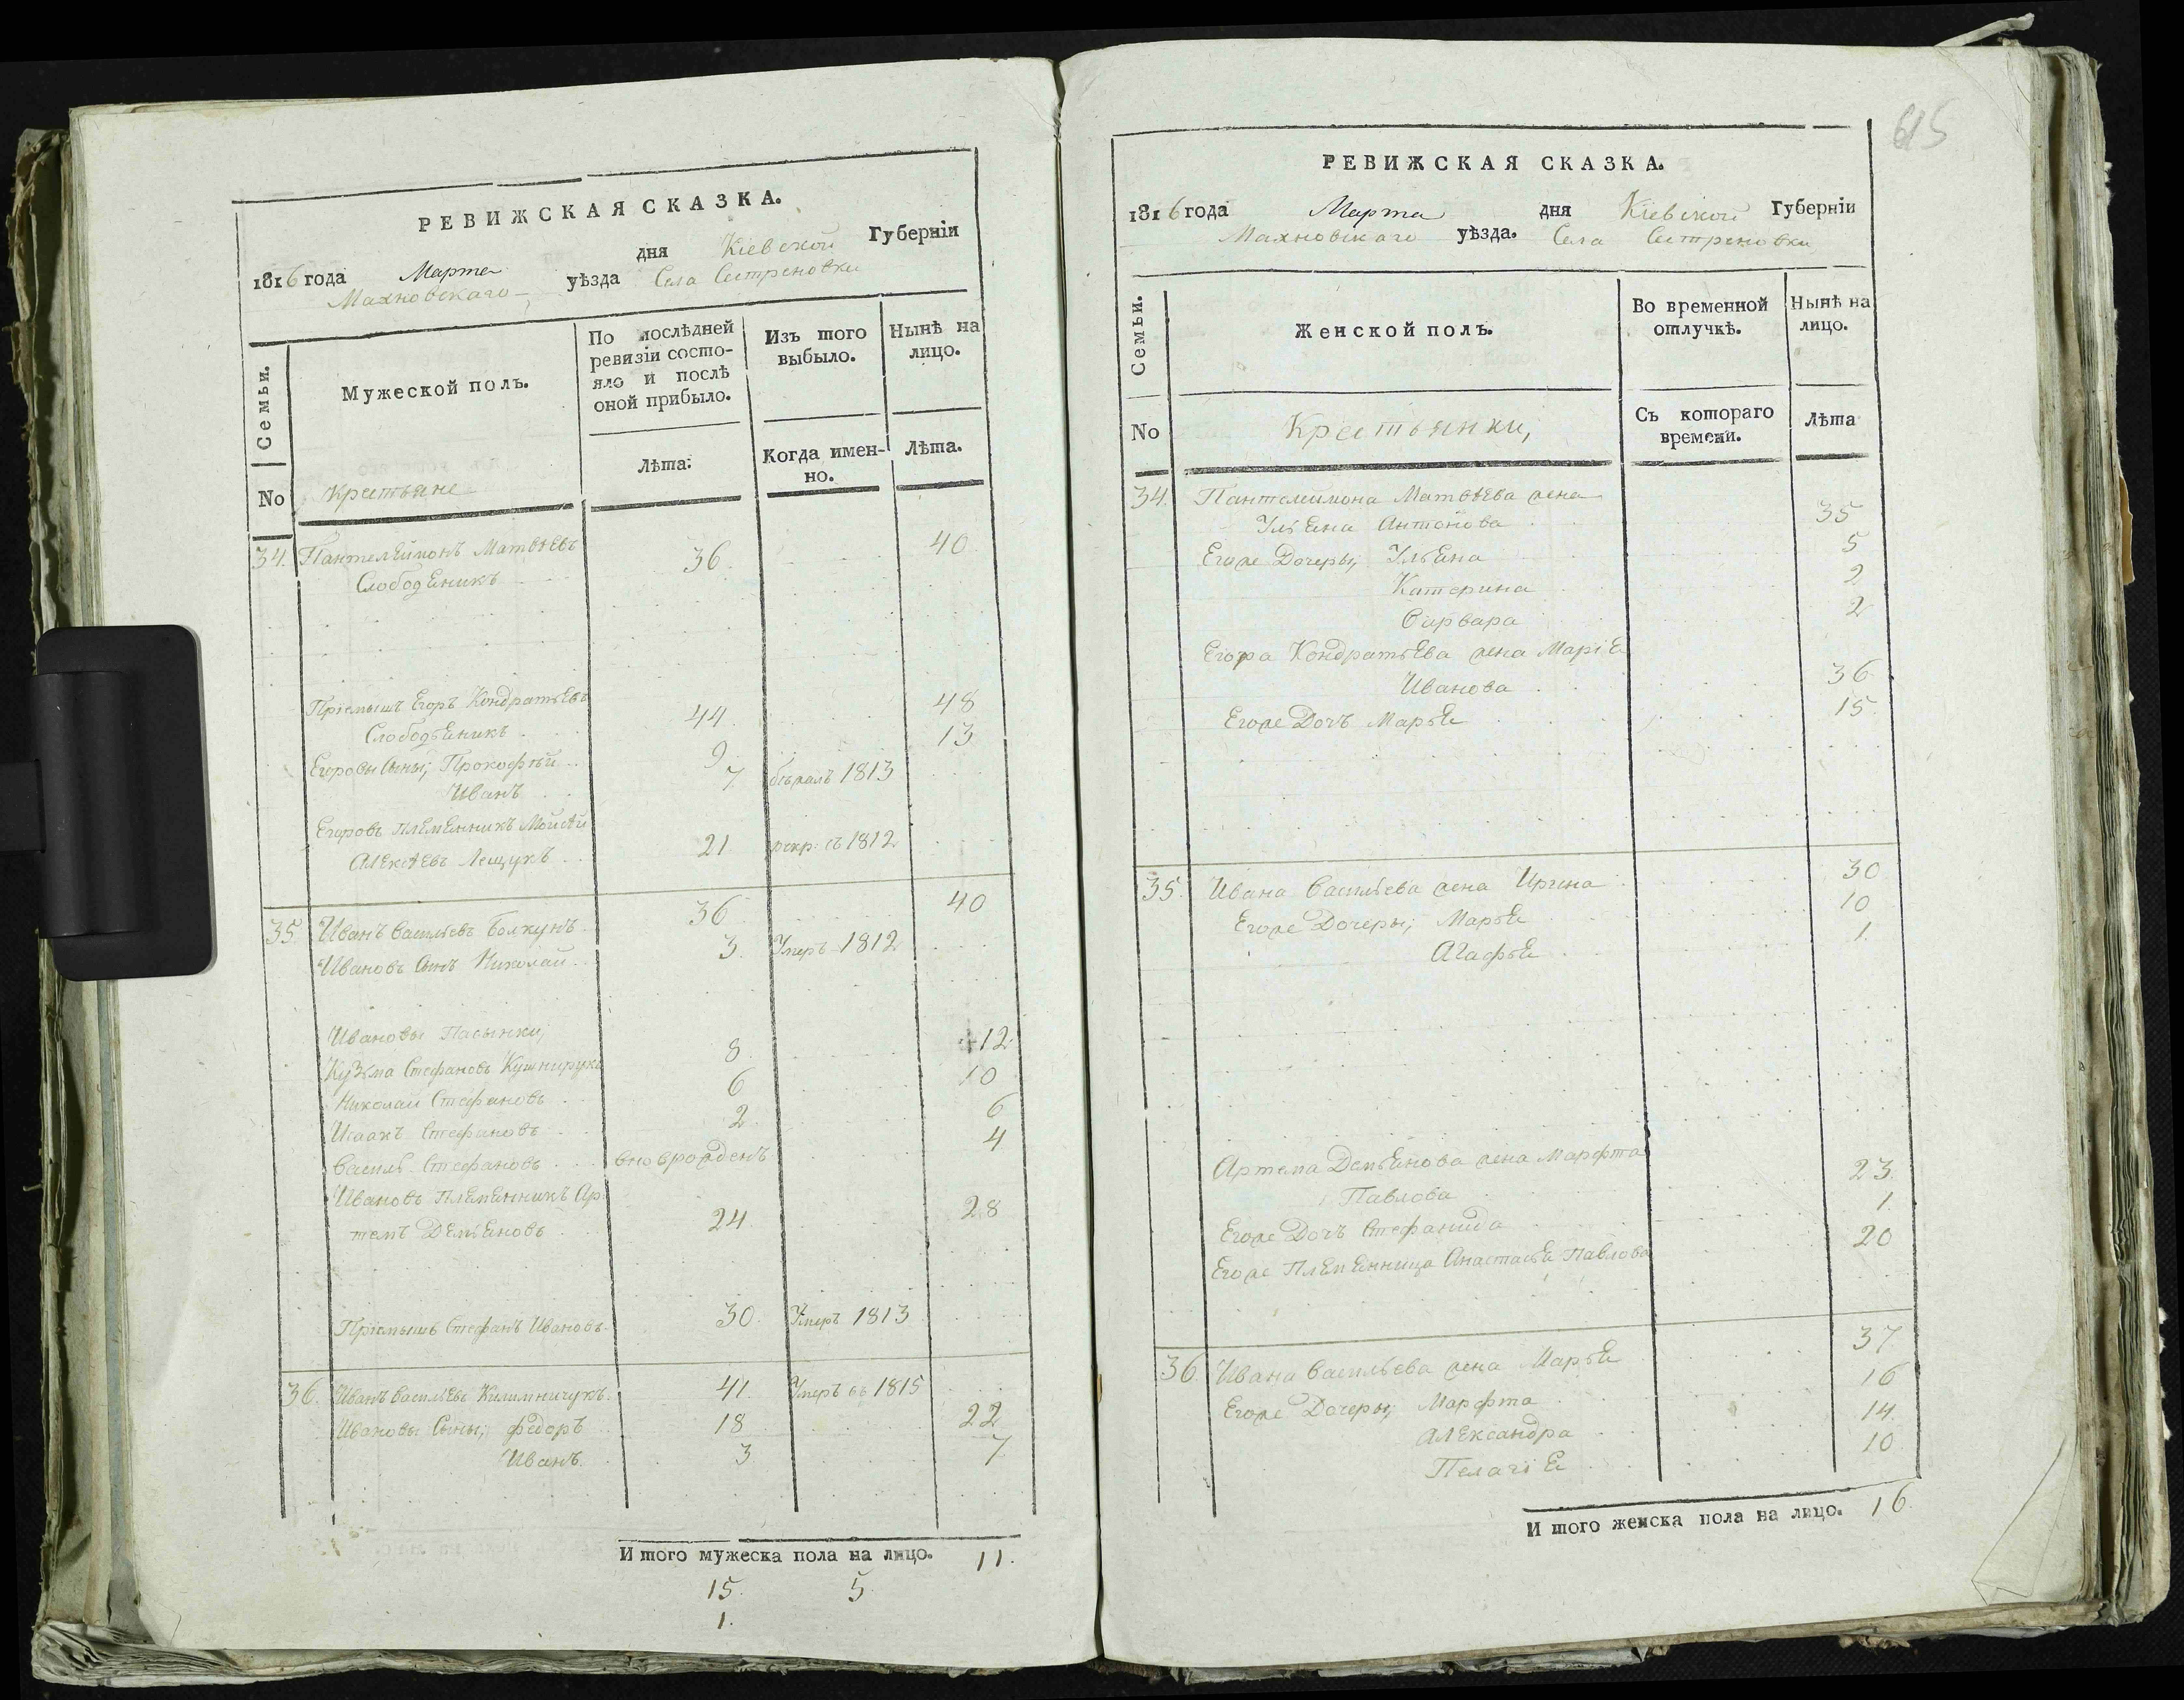 РЕВИЖСКАЯ СКАЗКА.
1816 года Марта дня Кіевской Губерніи
Махновскаго уѣзда Села Сестреновки
Семьи.
No
Мужеской полъ.
Крестьяне
По послѣдней ревизіи состо-
яло и послѣ оной прибыло.
Лѣта:
Изъ того выбыло.
Когда имен-
но.
Нынѣ на лицо.
Лѣта.
34. Пантелеймонъ Матвѣевъ
Слободяникъ 36. 40.
Пріемышъ Егоръ Кондратьевъ
Слободяникъ 44. 48
Егоровы Сыны; Прокофѣй 9 13
Иванъ 7. бѣжалъ 1813
Егоровъ племянникъ Мойсѣй
Алексѣевъ Лещукъ 21 рекр: съ 1812
35. Иванъ Васильевъ Болкунъ 36 40
Ивановъ Сынъ Николай 3. Умеръ 1812
Ивановы Пасынки;
Кузьма Стефановъ Кушнирукъ 8. 12
Николай Стефановъ 6 10
Исаакъ Стефановъ 2. 6
Василь Стефановъ вновърожденъ 4
Ивановъ Племянникъ Ар-
темъ Демьяновъ 24. 28
Пріемышъ Стефанъ Ивановъ 30. Умеръ 1813
36. Иванъ Васильевъ Килимничукъ 41. Умеръ въ 1815
Ивановы Сыны; Федоръ 18 22
Иванъ 3 7
Итого мужеска пола на лицо. 11.
15. 5.
1.
615
РЕВИЖСКАЯ СКАЗКА.
1816 года Марта дня Кіевской Губерніи
Махновскаго уѣзда. Села Сестреновки
Семьи.
No
Женской полъ.
Крестьянки,
Во временной отлучкѣ.
Съ котораго времени.
Нынѣ на лицо.
Лѣта
34. Пантелеймона Матвѣева жена
Ульяна Антонова 35
Егоже Дочеры; Ульяна 5
Катерина 2
Варвара 2
Егора Кондратьева жена Марія
Иванова 36.
Егоже Дочъ Марья 15.
35. Ивана Васильева жена Ирина 30
Егоже Дочеры; Марья 10
Агафья 1.
Артема Демьянова жена Марфта
Павлова 23.
Егоже Дочъ Стефанида 1.
Егоже Племянница Анастасья Павлова 20
36. Ивана Васильева жена Марья 37
Егоже Дочеры; Марфта 16
Александра 14.
Пелагія 10
Итого женска пола на лицо. 16.